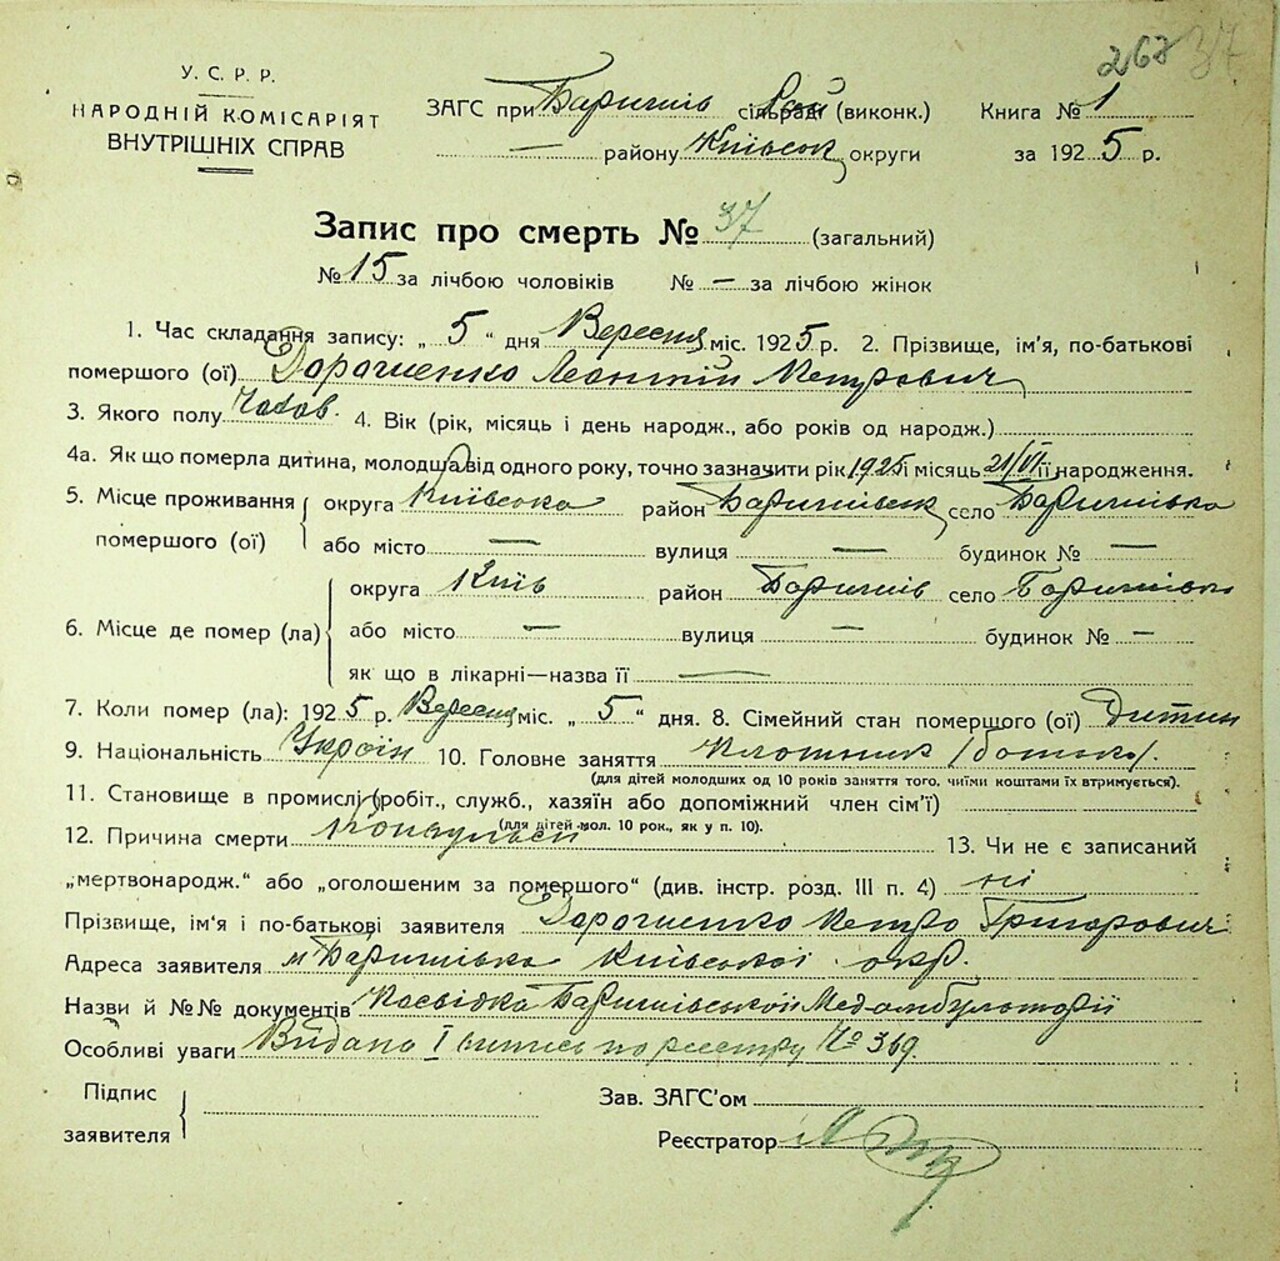 267 37
У. С. Р. Р.
НАРОДНІЙ КОМІСАРІЯТ
ВНУТРІШНІХ СПРАВ
ЗАГС при Баришів сільраді Рай (виконк.) Книга № 1
— району Київськ округи за 1925 р.
Запис про смерть № 37 (загальний)
№ 15 за лічбою чоловіків № — за лічбою жінок
1. Час складання запису: „ 5 “ дня Вересня міс. 1925 р. 2. Прізвище, ім’я, по-батькові
помершого (ої) Дорошенко Леонтій Петрович
3. Якого полу Чолов. 4. Вік (рік, місяць і день народж., або років од народж.)
4а. Як що померла дитина, молодша від одного року, точно зазначити рік 1925 і місяць 21/VI її народження.
5. Місце проживання помершого (ої) округа Київська район Баришівськ село Баришівка
або місто — вулиця — будинок № —
6. Місце де помер (ла) округа Київ район Баришів село Баришівк
або місто — вулиця — будинок № —
як що в лікарні—назва її —
7. Коли помер (ла): 1925 р. Вересня міс. „ 5 “ дня. 8. Сімейний стан помершого (ої) Дитин
9. Національність Україн 10. Головне заняття Плотник (батько).
(для дітей молодших од 10 років заняття того, чиїми коштами їх втримується).
11. Становище в промислі (робіт., служб., хазяїн або допоміжний член сім’ї)
(для дітей мол. 10 рок., як у п. 10).
12. Причина смерти Конвульсії 13. Чи не є записаний
„мертвонародж.“ або „оголошеним за помершого“ (див. інстр. розд. III п. 4) ні
Прізвище, ім‘я і по-батькові заявителя Дорошенко Петро Григорович
Адреса заявителя м Баришівка Київської окр.
Назви й №№ документів Посвідка Баришівської Медамбулаторії
Особливі уваги Видано I витись по реєстру № 369.
Підпис заявителя
Зав. ЗАГС’ом
Реєстратор